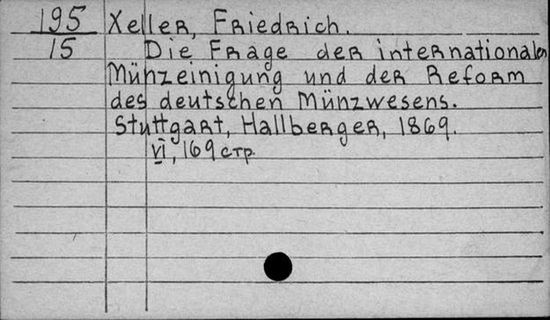 195 Xeller, Friedrich.
15 Die Frage der internationalen
Münzeinigung und der Reform
des deutschen Münzwesens.
Stuttgart, Hallberger, 1869.
VI, 169 стр.